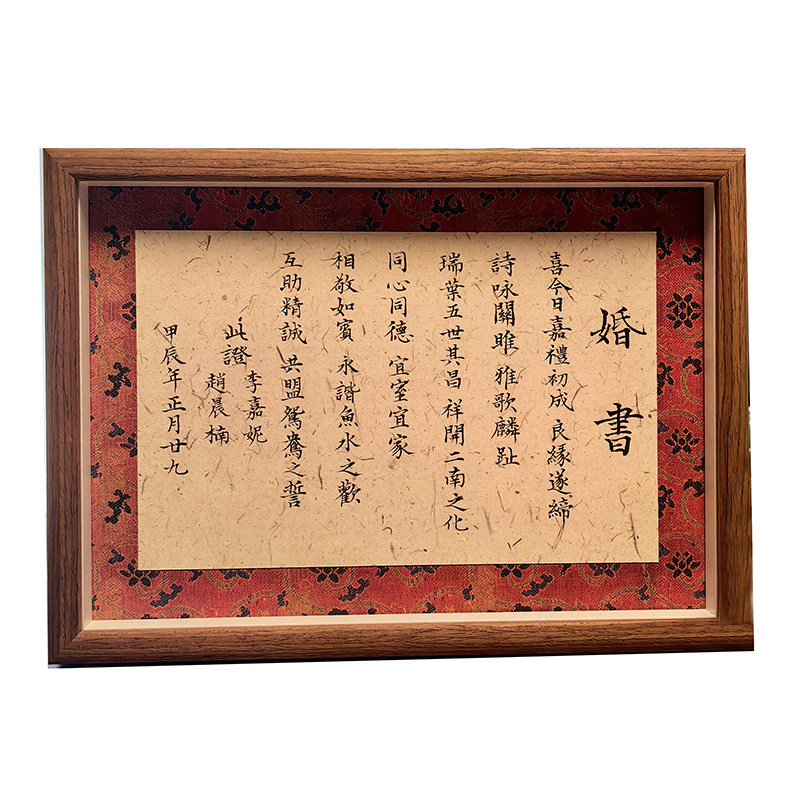 婚書
喜今日嘉禮初成 良緣遂締
詩咏關雎 雅歌麟趾
瑞葉五世其昌 祥開二南之化
同心同德 宜室宜家
相敬如賓 永諧魚水之歡
互助精誠 共盟鴛鴦之誓
此證
李嘉妮
趙晨楠
甲辰年正月廿九